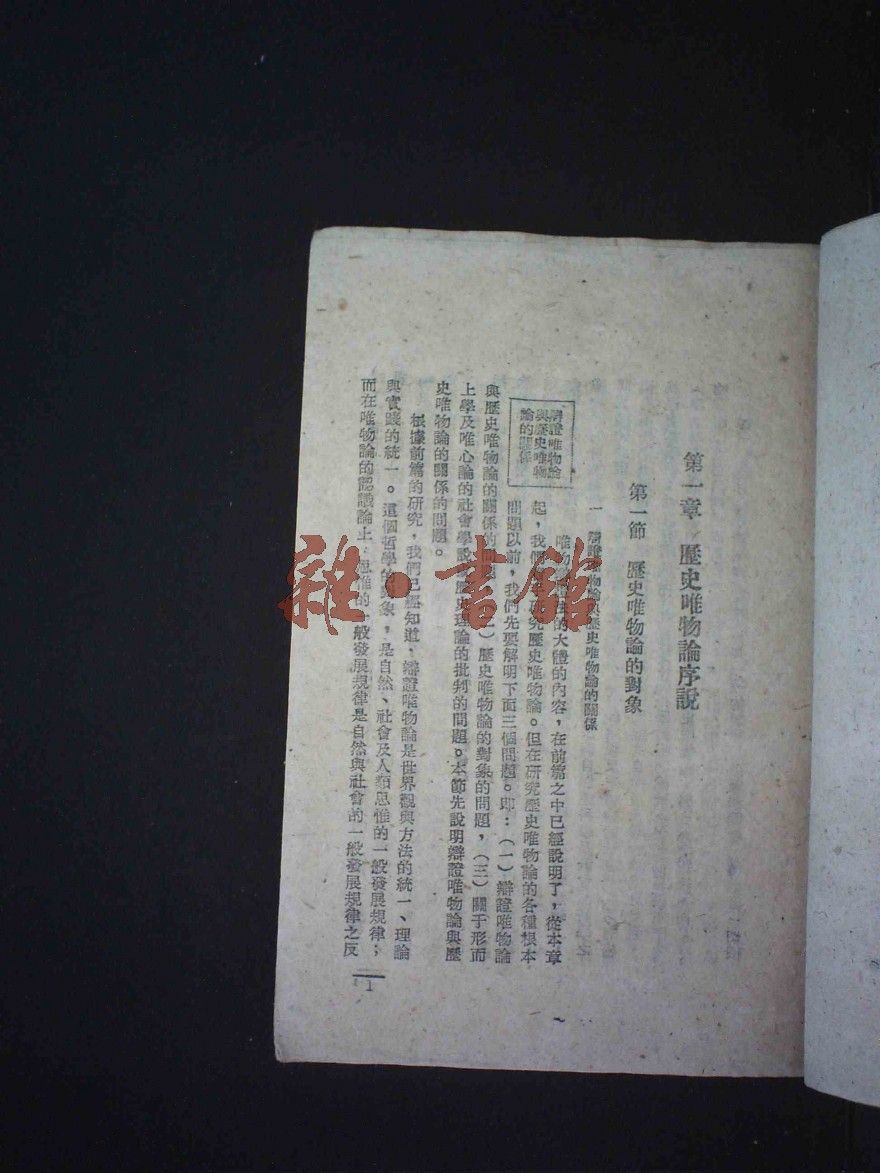 第一章 歷史唯物論序說
第一節 歷史唯物論的對象
一 辯證唯物論與歷史唯物論的關係
辯證唯物論
與歷史唯物
論的關係
唯物 的大體的內容，在前篇之中已經說明了，從本章
起，我們 研究歷史唯物論。但在研究歷史唯物論的各種根本
問題以前，我們先要解明下面三個問題。即：（一）辯證唯物論
與歷史唯物論的關係的問題，（二）歷史唯物論的對象的問題，（三）關于形而
上學及唯心論的社會學說或歷史理論的批判的問題。本節先說明辯證唯物論與歷
史唯物論的關係的問題。
根據前篇的研究，我們已經知道，辯證唯物論是世界觀與方法的統一、理論
與實踐的統一。這個哲學的對象，是自然、社會及人類思惟的一般發展規律；
而在唯物論的認識論上，思惟的一般發展規律是自然與社會的一般發展規律之反
1
雜·書館